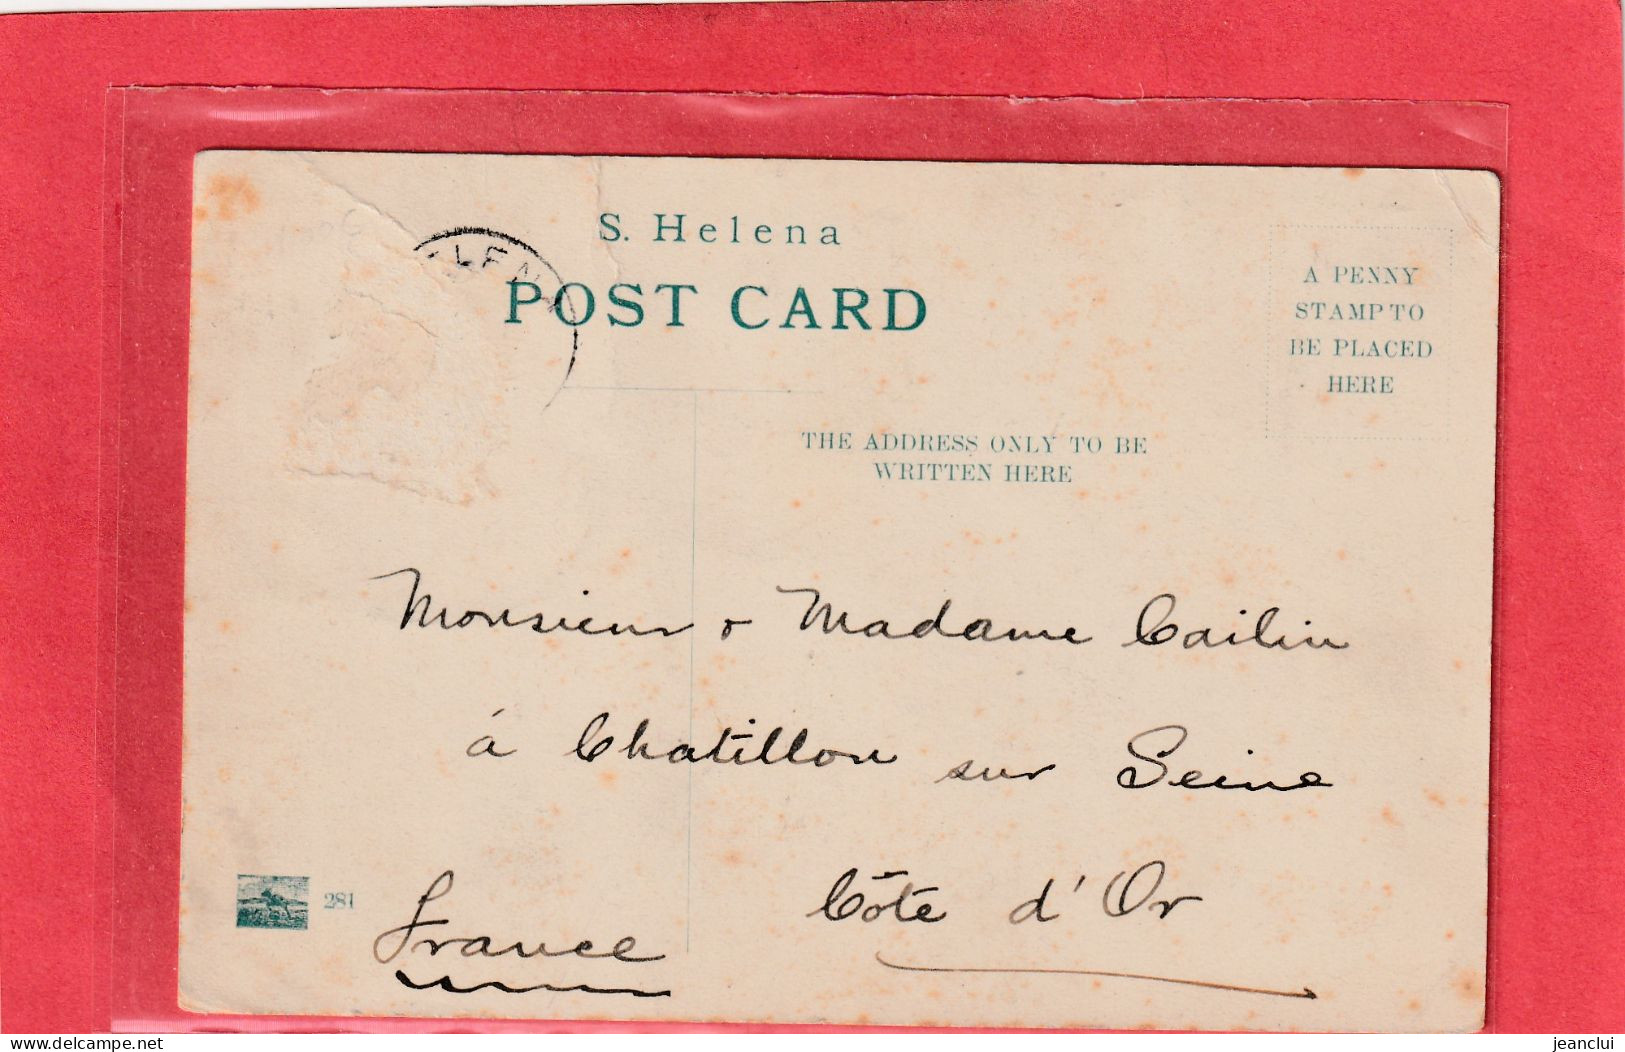 S. Helena
POST CARD
A PENNY
STAMP TO
BE PLACED
HERE
THE ADDRESS ONLY TO BE
WRITTEN HERE
Monsieur & Madame Cailin
à Chatillon sur Seine
Côte d'Or
France
281
delcampe.net
jeanclui